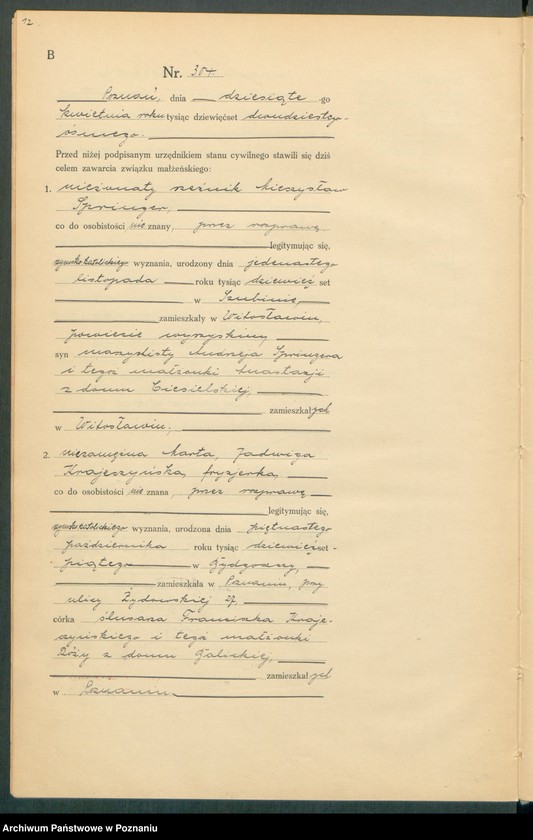 12.
B
Nr. 304.
Poznań, dnia dziesiątego
kwietnia roku tysiąc dziewięćset dwudziestego
ósmego.
Przed niżej podpisanym urzędnikiem stanu cywilnego stawili się dziś
celem zawarcia związku małżeńskiego:
1. nieżonaty rzeźnik Mieczysław
Springer,
co do osobistości nieznany, przez rozprawę
legitymując się,
rzymskokatolickiego wyznania, urodzony dnia jedenastego
listopada roku tysiąc dziewięćset
w Szubinie,
zamieszkały w Witosławiu,
powiecie wyrzyskim,
syn maszynisty Andrzeja Springera
i tegoż małżonki Anastazji
z domu Ciesielskiej,
zamieszkał
w Witosławiu.
2. niezamężna Marta, Jadwiga
Krajeszyńska, fryzjerka,
co do osobistości nie znana, przez rozprawę
legitymując się,
rzymskokatolickiego wyznania, urodzona dnia piętnastego
października roku tysiąc dziewięćset
piątego w Bydgoszczy,
zamieszkała w Poznaniu, przy
ulicy Żydowskiej 27,
córka ślusarza Franciszka Kraje-
szyńskiego i tegoż małżonki
Róży z domu Galickiej,
zamieszkał
w Poznaniu.
Archiwum Państwowe w Poznaniu